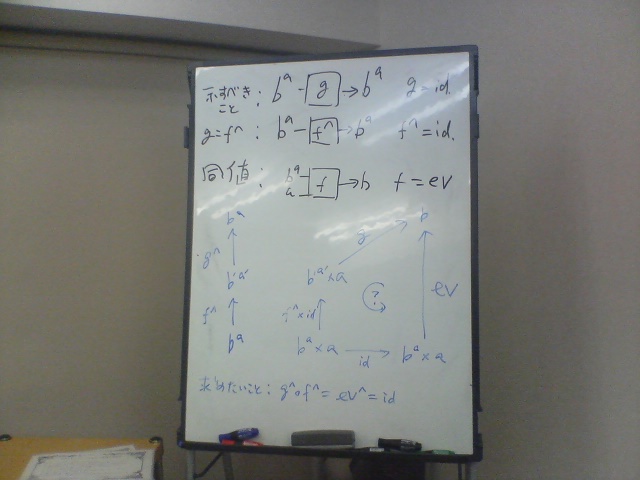 示すべきこと: b^a -[g]→ b^a g=id.
g=f^: b^a -[f^]→ b^a f^=id.
同値: b^a a [f]→ b f=ev
b^a
b
g
g^
b^a' b^a' × a
?
ev
f^ f^×id
b^a b^a × a id b^a × a
求めたいこと: g^∘f^ = ev^ = id